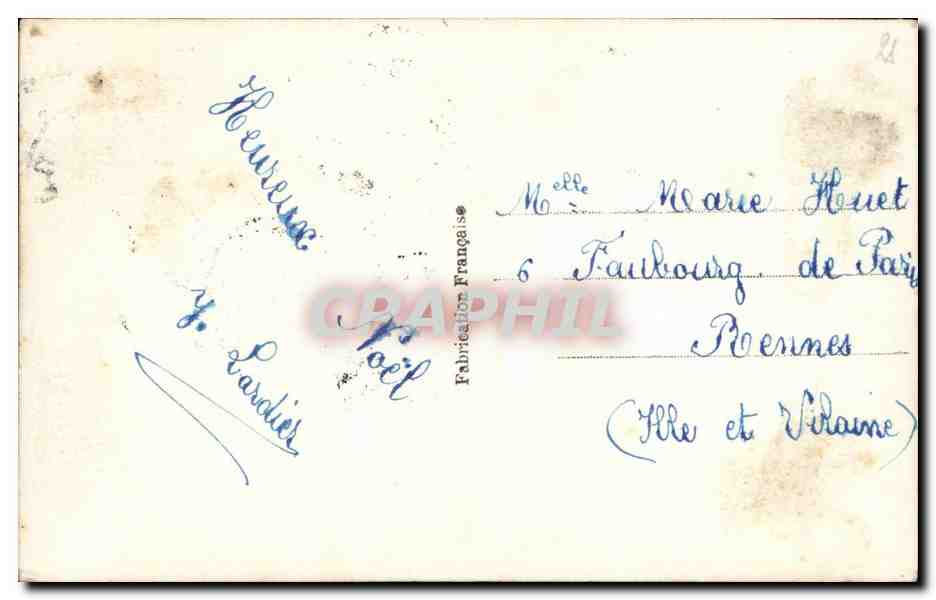 21
Heureux
Noël
Y. Lardier
Fabrication Française
CPAPHIL
Melle Marie Huet
6 Faubourg de Paris
Rennes
(Ille et Vilaine)